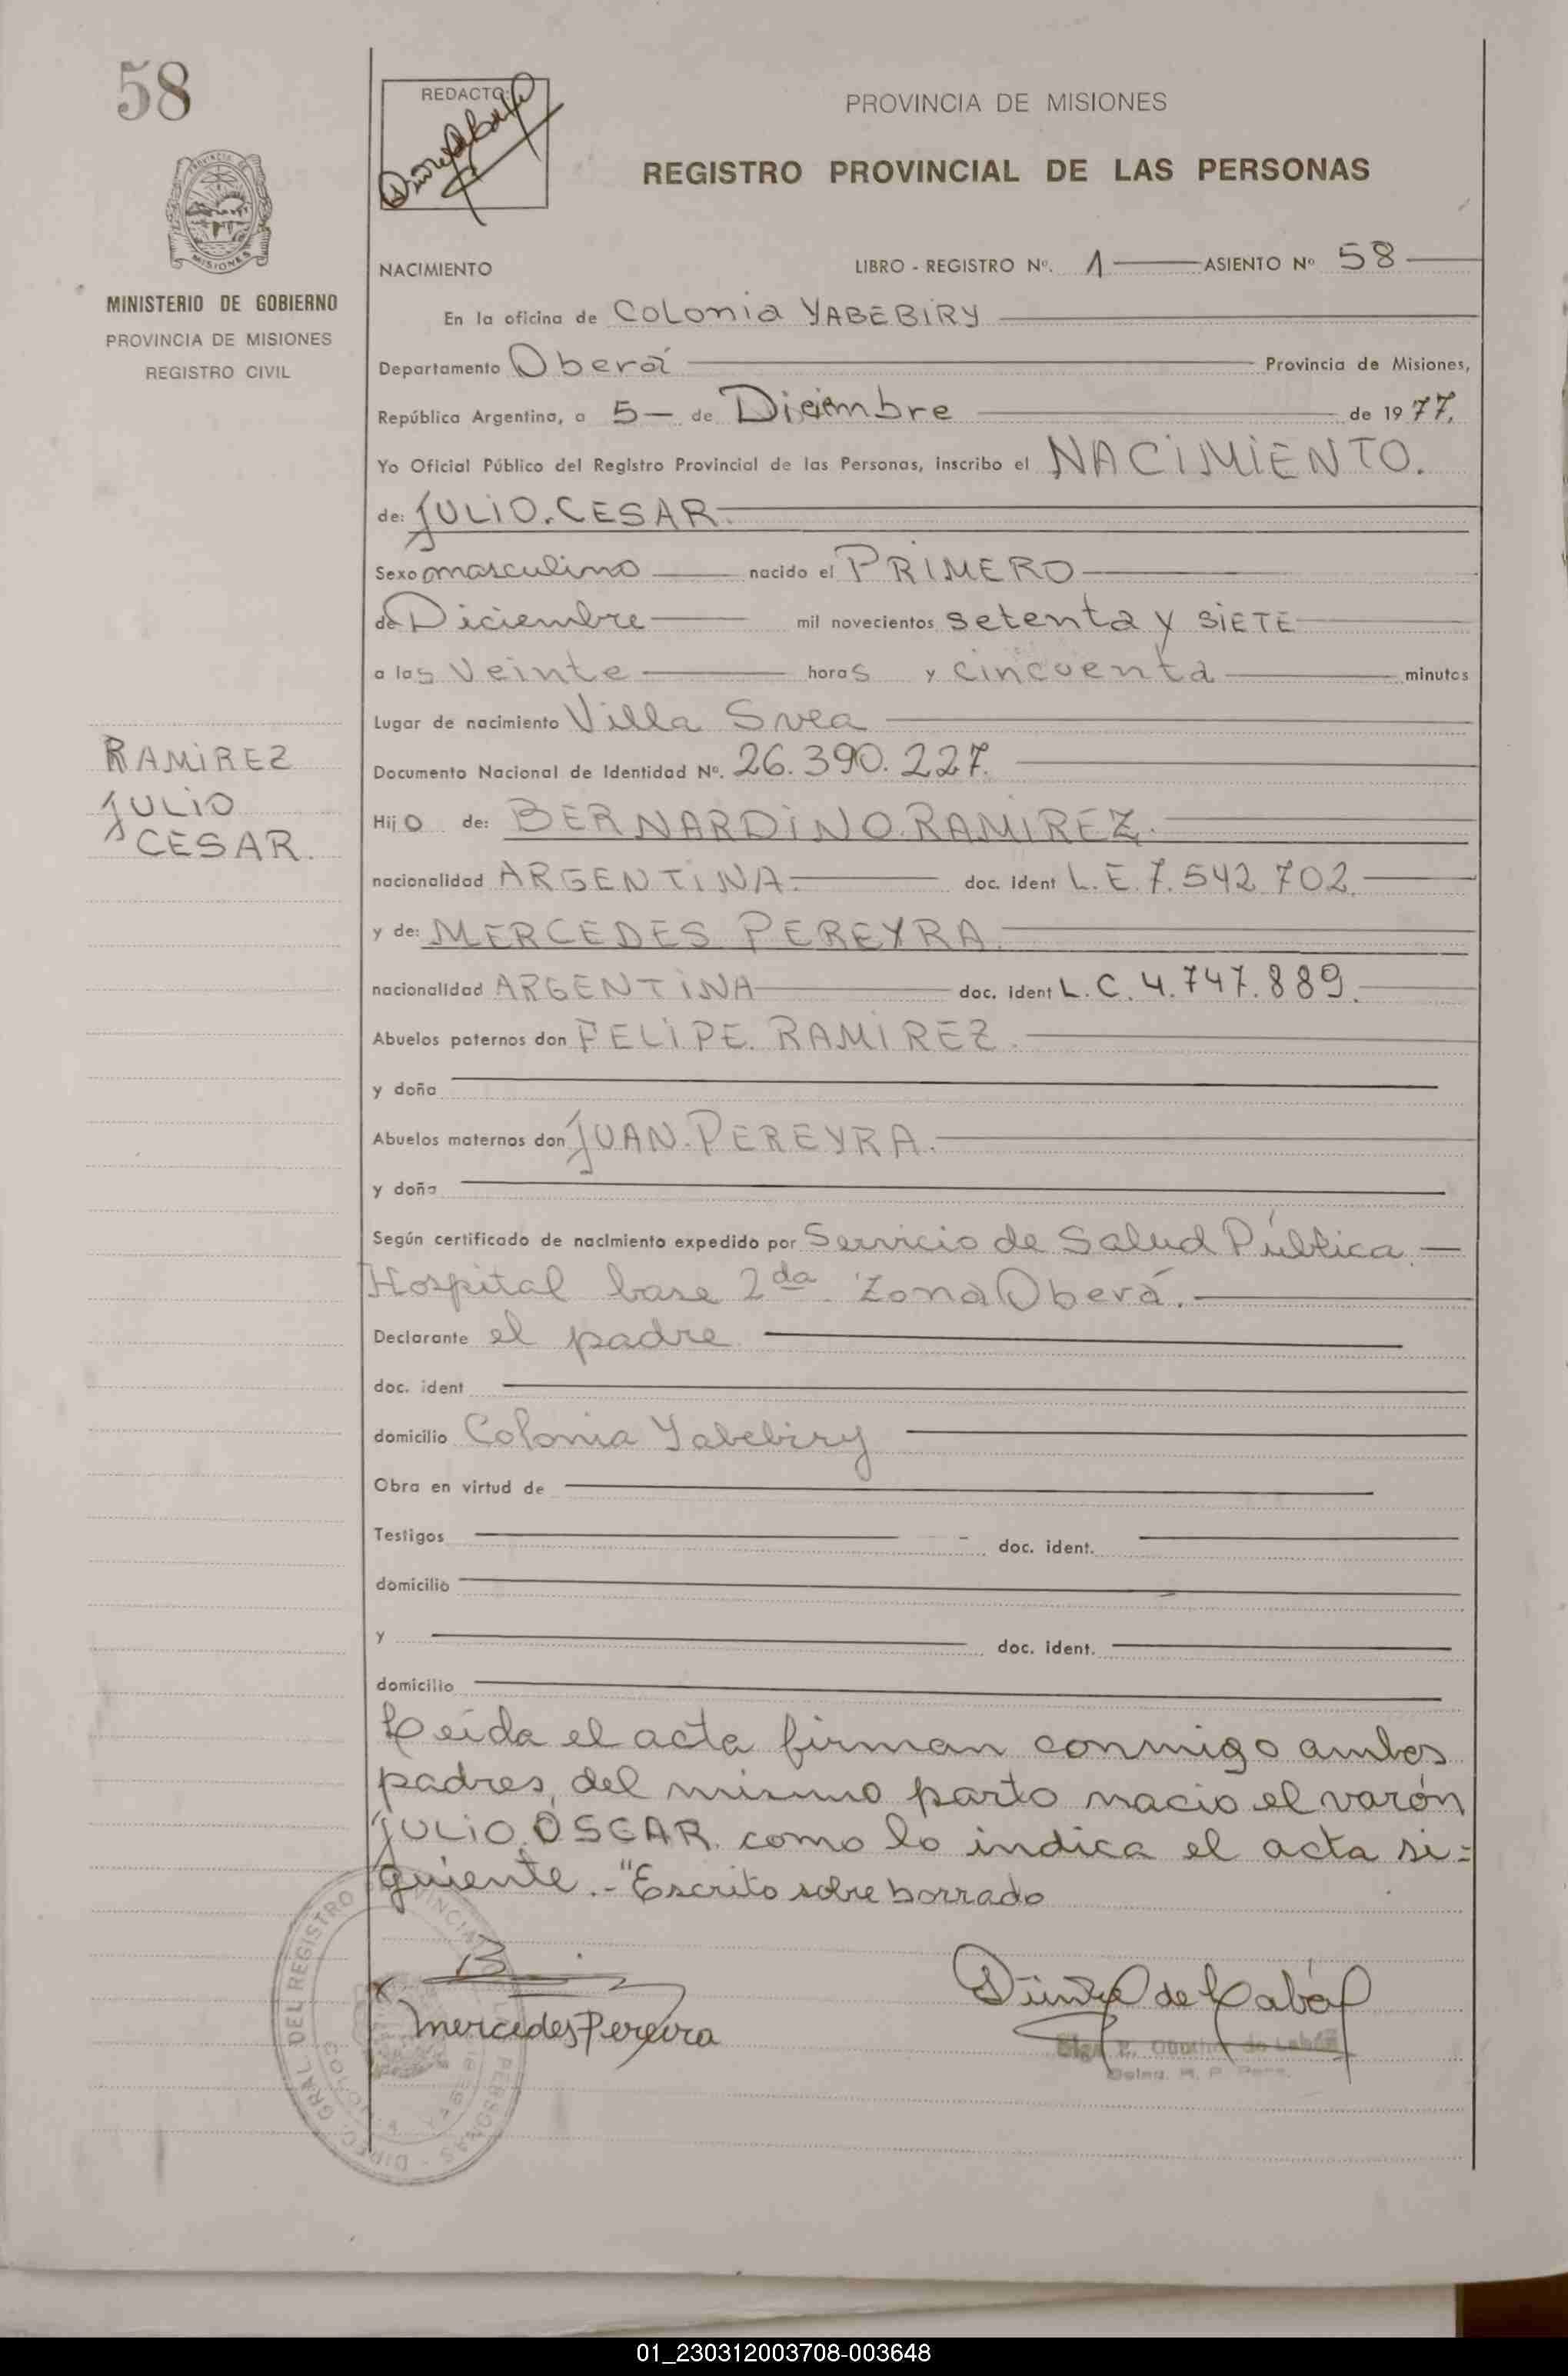 58
REDACTO:
PROVINCIA DE MISIONES
REGISTRO PROVINCIAL DE LAS PERSONAS
MISIONES
MINISTERIO DE GOBIERNO
PROVINCIA DE MISIONES
REGISTRO CIVIL
NACIMIENTO LIBRO - REGISTRO Nº. 1 ASIENTO Nº 58
En la oficina de Colonia YABEBIRY
Departamento Oberá Provincia de Misiones,
República Argentina, a 5 de Diciembre de 1977.
Yo Oficial Público del Registro Provincial de las Personas, inscribo el NACIMIENTO.
de: JULIO.CESAR.
Sexo masculino nacido el PRIMERO
de Diciembre mil novecientos setenta y SIETE
a las Veinte horas y cincuenta minutos
Lugar de nacimiento Villa Svea
RAMIREZ
JULIO
CESAR.
Documento Nacional de Identidad Nº. 26.390.227.
Hijo de: BERNARDINO.RAMIREZ.
nacionalidad ARGENTINA. doc. ident L.E.7.542.702.
y de: MERCEDES PEREYRA.
nacionalidad ARGENTINA doc. ident L.C.4.747.889.
Abuelos paternos don FELIPE. RAMIREZ.
y doña
Abuelos maternos don JUAN.PEREYRA.
y doña
Según certificado de nacimiento expedido por Servicio de Salud Pública.
Hospital base 2da. Zona Oberá.
Declarante el padre
doc. ident
domicilio Colonia Yabebiry
Obra en virtud de
Testigos doc. ident.
domicilio
y doc. ident.
domicilio
Leída el acta firman conmigo ambos
padres, del mismo parto nacio el varón
JULIO.OSCAR. como lo indica el acta si=
guiente.-"Escrito sobre borrado
Mercedes Pereira
01_230312003708-003648